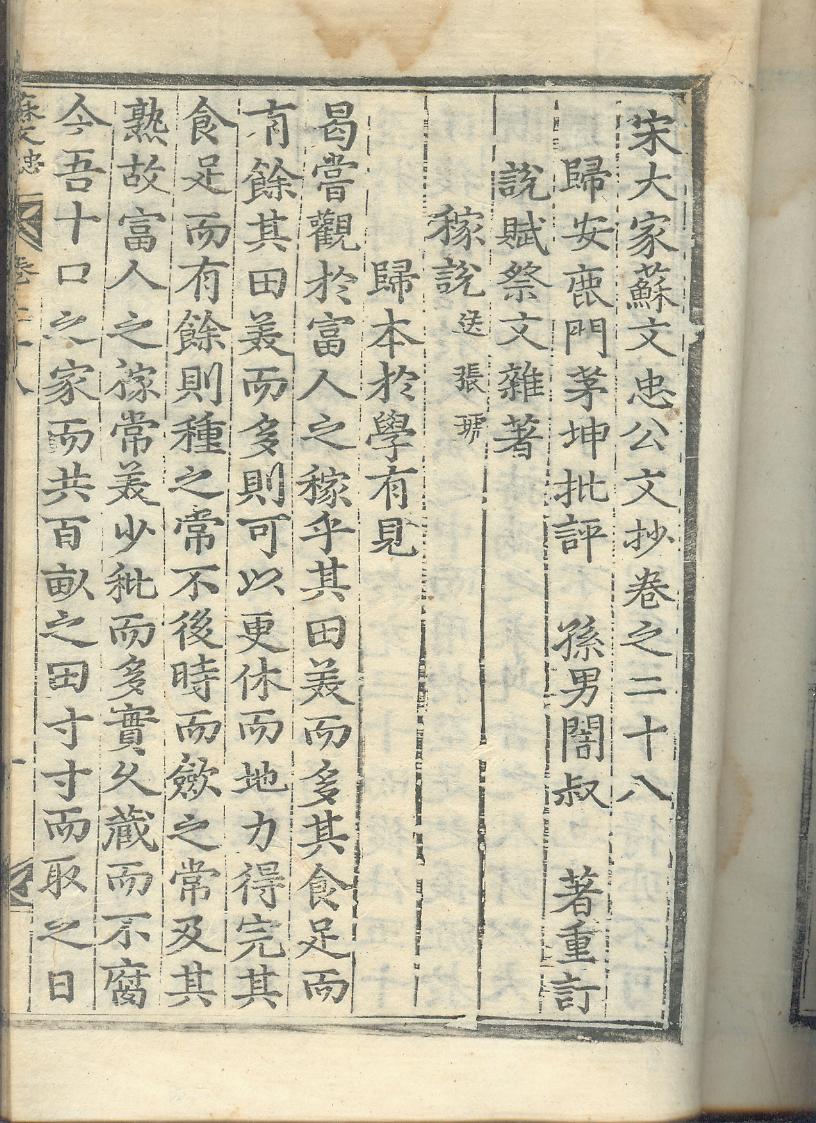 宋大家蘇文忠公文抄卷之二十八
歸安鹿門茅坤批評　孫男闇叔　著重訂
說賦祭文雜著
稼說送張琥
歸本於學有見
曷嘗觀於富人之稼乎其田美而多其食足而
有餘其田美而多則可以更休而地力得完其
食足而有餘則種之常不後時而斂之常及其
熟故富人之稼常美少秕而多實久藏而不腐
今吾十口之家而共百畝之田寸寸而取之日
蘇文忠　卷二十八